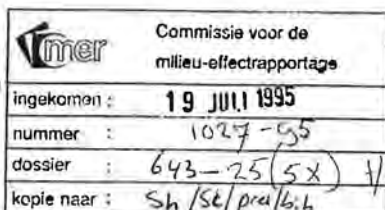 mer
Commissie voor de
milieu-effectrapportage
ingekomen : 19 JULI 1995
nummer : 1027-95
dossier : 643-25(5X)
kopie naar : Sh/St/pra/bib